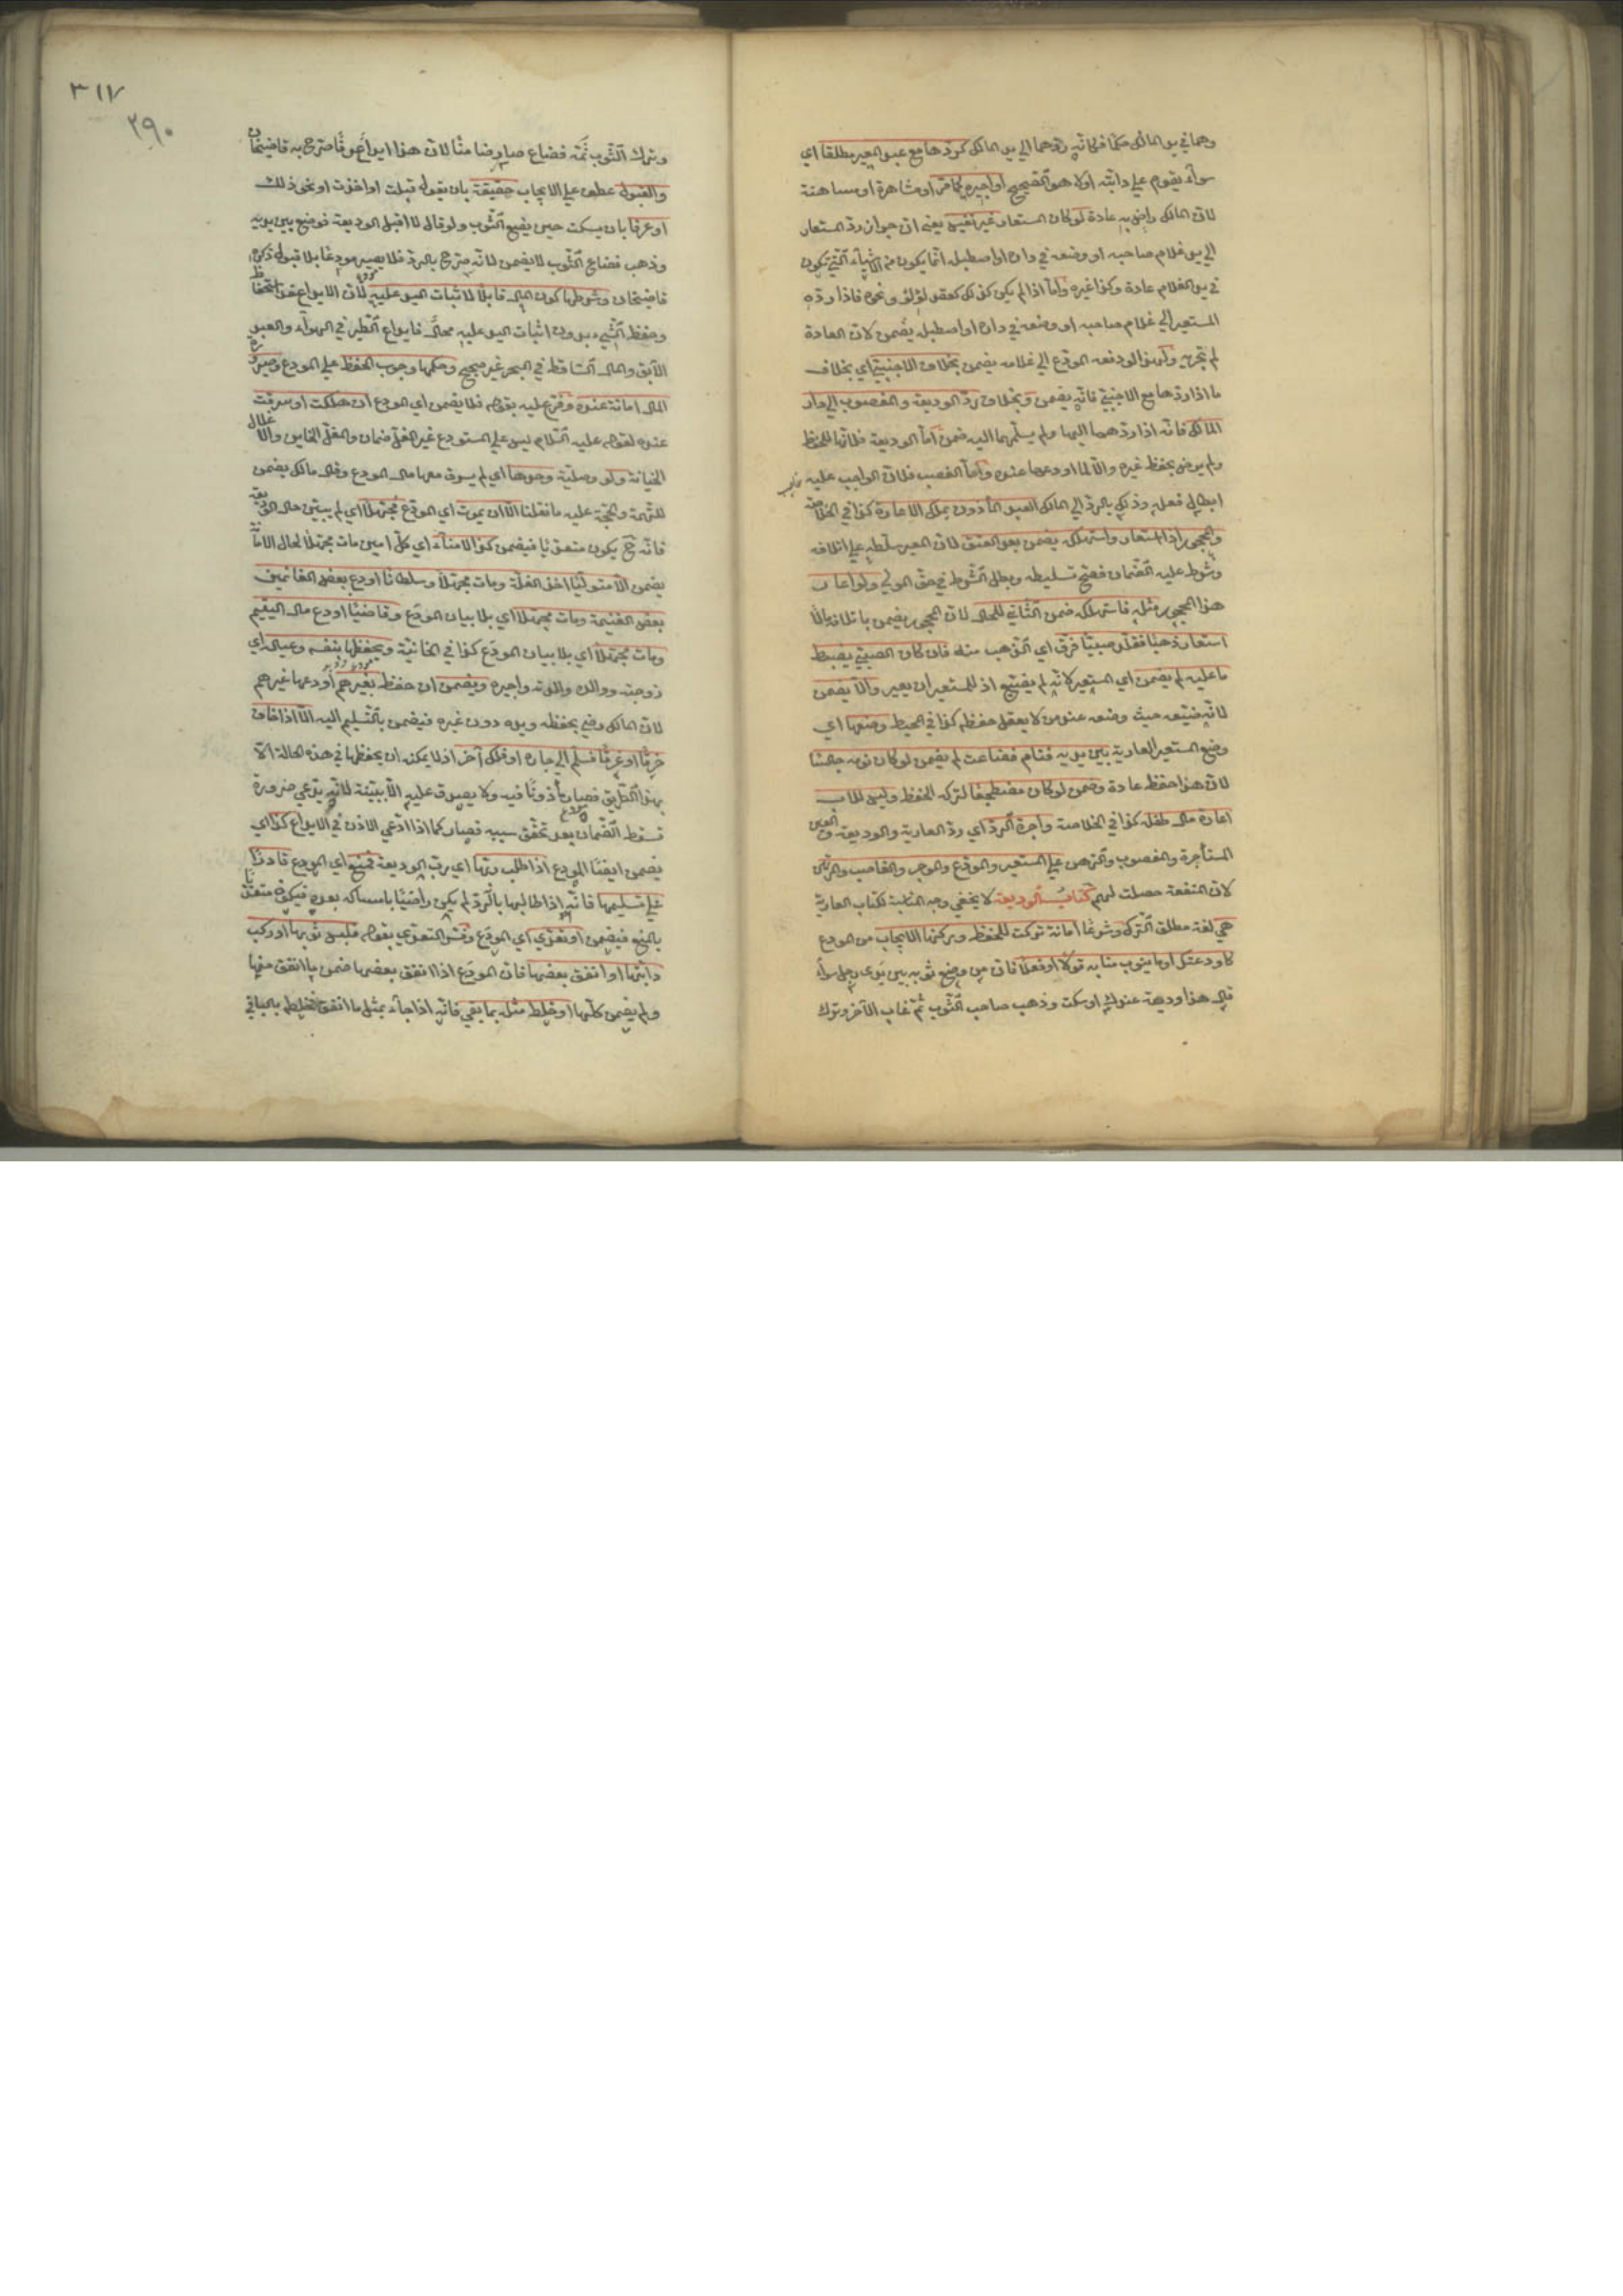 وهما في يد المالك حكما فكانه ردهما الى يد المالك كردها مع عبد المعير مطلقا اي
سواء يقوم على دابته اولا هو الصحيح او اجيره كما مر او مشاهرة او مسانهة
لان المالك راض به عادة لو كان المستعار غير نفيس يعني ان جواز رد المستعار
الى يد غلام صاحبه او وضعه في داره او اصطبله انما يكون في الاشياء التي تكون
في يد الغلام عادة وكذا غيره واما اذا لم يكن كذلك كعقد لؤلؤ ونحوه فاذا رده
المستعير الى غلام صاحبه او وضعه في داره او اصطبله يضمن لان العادة
لم تجر به ولهذا لو دفعه المودع الى غلامه يضمن بخلاف الاجنبي اي بخلاف
ما اذا ردها مع الاجنبي فانه يضمن وبخلاف رد الوديعة والمغصوب الى دار
المالك فانه اذا ردهما اليها ولم يسلمهما اليه ضمن اما الوديعة فلانها للحفظ
ولم يرض بحفظ غيره والا لما اودعها عنده واما الغصب فلان الواجب عليه
ابطال فعله وذلك بالرد الى المالك العبد المأذون يملك الاعارة كذا في الخلاصة
والمحجور اذا استعار واستهلكه يضمن بعد العتق لان المعير سلطه على اتلافه
وشرط عليه الضمان فصح تسليطه وبطل الشرط في حق المولى ولو اعار
هذا المحجور مثله فاستهلكه ضمن الثاني للحال لان المحجور يضمن باتلافه حالا
استعار ذهبا فقلد صبيا فسرق اي الذهب منه فان كان الصبي يضبط
ما عليه لم يضمن اي المستعير لانه لم يضيع اذ للمستعير ان يعير والا يضمن
لانه ضيعه حيث وضعه عند من لا يعقل حفظه كذا في المحيط وضعها اي
وضع المستعير العارية بين يديه فنام فضاعت لم يضمن لو كان نومه جالسا
لان هذا حفظ عادة وضمن لو كان مضطجعا لتركه الحفظ وليس للاب
اعارة مال طفله كذا في الخلاصة واجرة الرد اي رد العارية والوديعة والعين
المستأجرة والمغصوب والرهن على المستعير والمودع والموجر والغاصب والمرتهن
لان المنفعة حصلت لهم كتاب الوديعة لا يخفى وجه المناسبة لكتاب العارية
هي لغة مطلق الترك وشرعا امانة تركت للحفظ وركنها الايجاب من المودع
كاودعتك او ما ينوب منابه قولا او فعلا فان من وضع ثوبه بين يدي رجل سواء
قال هذا وديعة عندك او سكت وذهب صاحب الثوب ثم غاب الآخر وترك
٣١٧
٢٩٠
وترك الثوب ثمة فضاع صار ضامنا لان هذا ايداع عرفا صرح به قاضيخان
والقبول عطف على الايجاب حقيقة بان يقول قبلت او اخذت او نحو ذلك
او عرفا بان يسكت حين يضع الثوب ولو قال لا اقبل الوديعة فوضع بين يديه
وذهب فضاع الثوب لا يضمن لانه صرح بالرد فلا يصير مودعا بلا قبول ذكره
قاضيخان وشرطها كون المال قابلا لاثبات اليد عليه لان الايداع عقد استحفاظ
وحفظ الشيء بدون اثبات اليد عليه محال فايداع الطير في الهواء والعبد
الآبق والمال الساقط في البحر غير صحيح وحكمها وجوب الحفظ على المودع وصيرورة
المال امانة عنده وفرع عليه بقوله فلا يضمن اي المودع ان هلكت او سرقت
عنده لقوله عليه السلام ليس على المستودع غير المغل ضمان والمغل الخاين والاغلال
الخيانة ولو وصلية وحدها اي لم يسرق معها مال المودع وقال مالك يضمن
للتهمة والحجة عليه ما نقلنا الا ان يموت اي المودع مجهلا اي لم يبين حال الوديعة
فانه ح يكون متعديا فيضمن كذا الامناء اي كل امين مات مجهلا لحال الامانة
يضمن الا متوليا اخذ الغلة ومات مجهلا وسلطانا اودع بعض الغانمين
بعض الغنيمة ومات مجهلا اي بلا بيان المودع وقاضيا اودع مال اليتيم
ومات مجهلا اي بلا بيان المودع كذا في الخانية ويحفظها بنفسه وعياله اي
زوجته وولده ووالديه واجيره ويضمن ان حفظ بغيرهم او اودعها غيرهم
لان المالك رضي بحفظه ويده دون غيره فيضمن بالتسليم اليه الا اذا خاف
حرقا او غرقا فسلم الى جاره او فلك آخر اذ لا يمكنه ان يحفظها في هذه الحالة الا
بهذا الطريق فصار مأذونا فيه ولا يصدق عليه الا ببينة لانه يدعي ضرورة
تسقط الضمان بعد تحقق سببه فصار كما اذا ادعى الاذن في الايداع كذا اي
يضمن ايضا المودع اذا طلب ربها اي رب الوديعة فمنع اي المودع قادرا
على تسليمها فانه اذا طالبها بالرد لم يكن راضيا بامساكه بعده فيكون متعديا
بالمنع فيضمن او تعدى اي المودع وفسر التعدي بقوله فلبس ثوبها او ركب
دابتها او انفق بعضها فان المودع اذا انفق بعضها ضمن ما انفق منها
ولم يضمن كلها او خلط مثله بما بقي فانه اذا جاء بمثل ما انفق فخلطه بالباقي